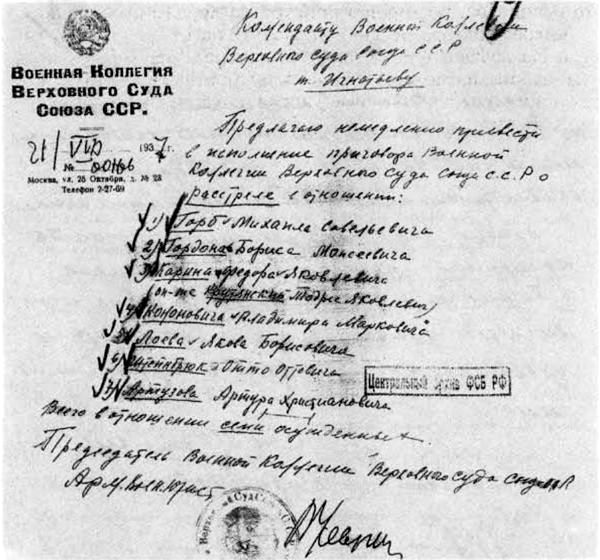 Военная Коллегия
Верховного Суда
Союза ССР.
21/VIII 1937 г.
№ 00166
Москва, ул. 25 Октября, д. № 23
Телефон 2-27-69
Коменданту Военной Коллегии
Верховного Суда Союза ССР
т. Игнатьеву
Предлагаю немедленно привести
в исполнение приговора Военной
Коллегии Верховного Суда Союза С.С.Р о
расстреле в отношении:
1) Горб Михаила Савельевича
2) Гордона Бориса Моисеевича
3) Карина Федора Яковлевича
(он-же Крутянский Тодрес Яковлевич)
4) Кононовича Владимира Марковича
5) Лоева Якова Борисовича
6) Штейнбрюк Отто Оттовича
7) Артузова Артура Христиановича
Всего в отношении семи осужденных.
Председатель Военной Коллегии Верховного суда
Армвоенюрист
Центральный архив ФСБ РФ